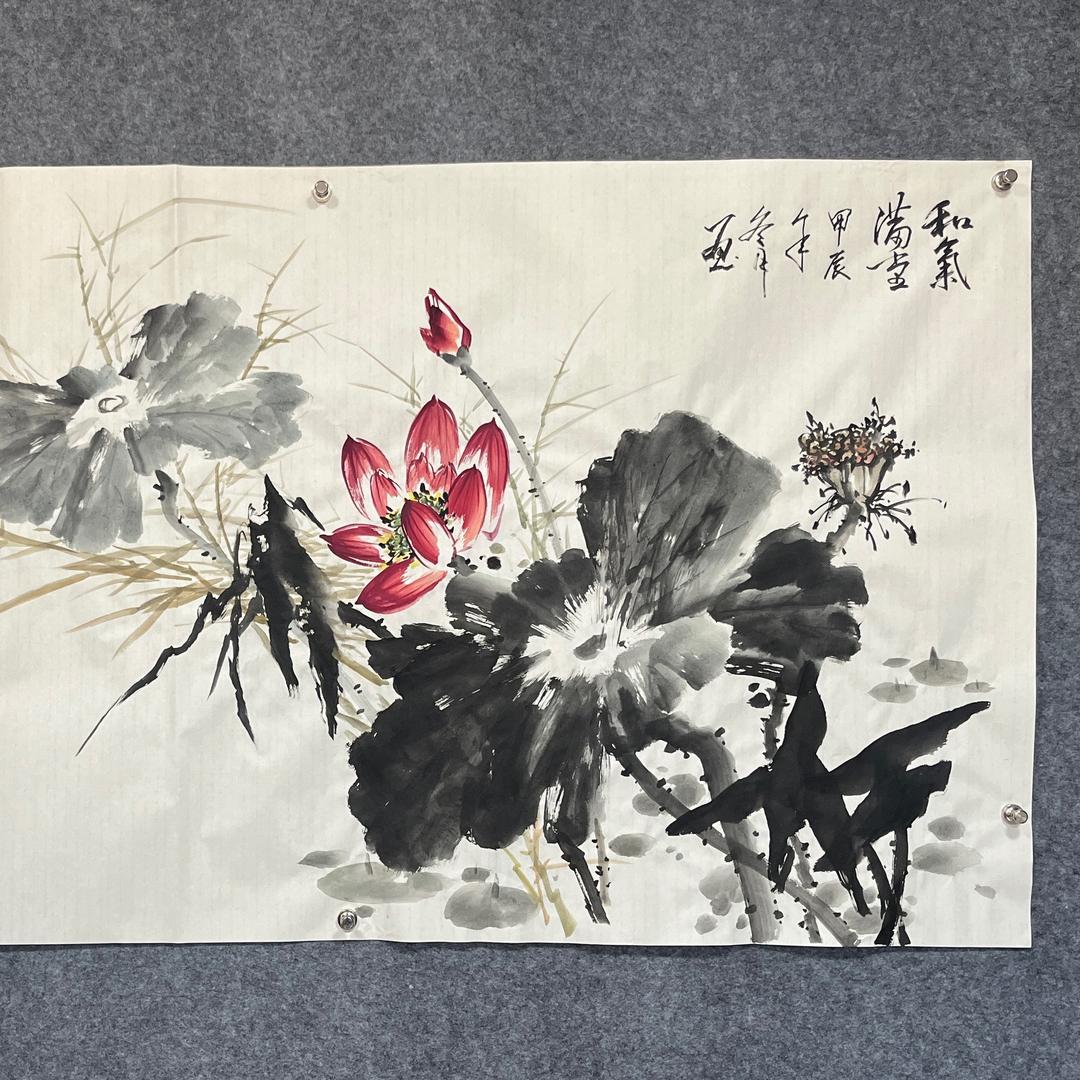 和氣
滿堂
甲辰
年
冬月
画